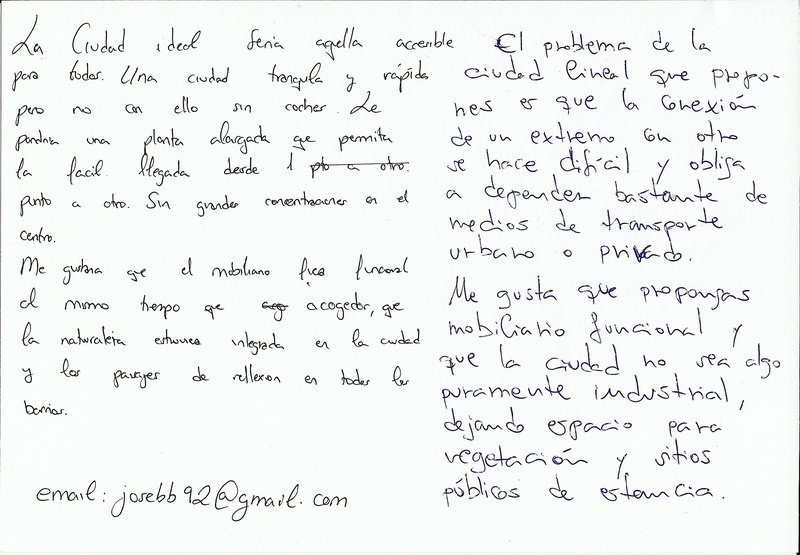 La Ciudad ideal seria aqella accesible
para todos. Una ciudad tranquila y rápida
pero no con ello sin coches. Le
pondria una planta alargada que permita
la facil llegada desde 1 pto a otro.
punto a otro. Sin grandes concentraciones en el
centro.
Me gustaria que el mobiliario fuese funcional
al mismo tiempo que acogedor, que
la naturaleza estuviese integrada en la ciudad
y los parajes de reflexion en todos los
barrios.
email: josebb92@gmail.com
El problema de la
ciudad lineal que propo-
nes es que la conexión
de un extremo con otro
se hace difícil y obliga
a depender bastante de
medios de transporte
urbano o privado.
Me gusta que propongas
mobiliario funcional y
que la ciudad no sea algo
puramente industrial,
dejando espacio para
vegetación y sitios
públicos de estancia.